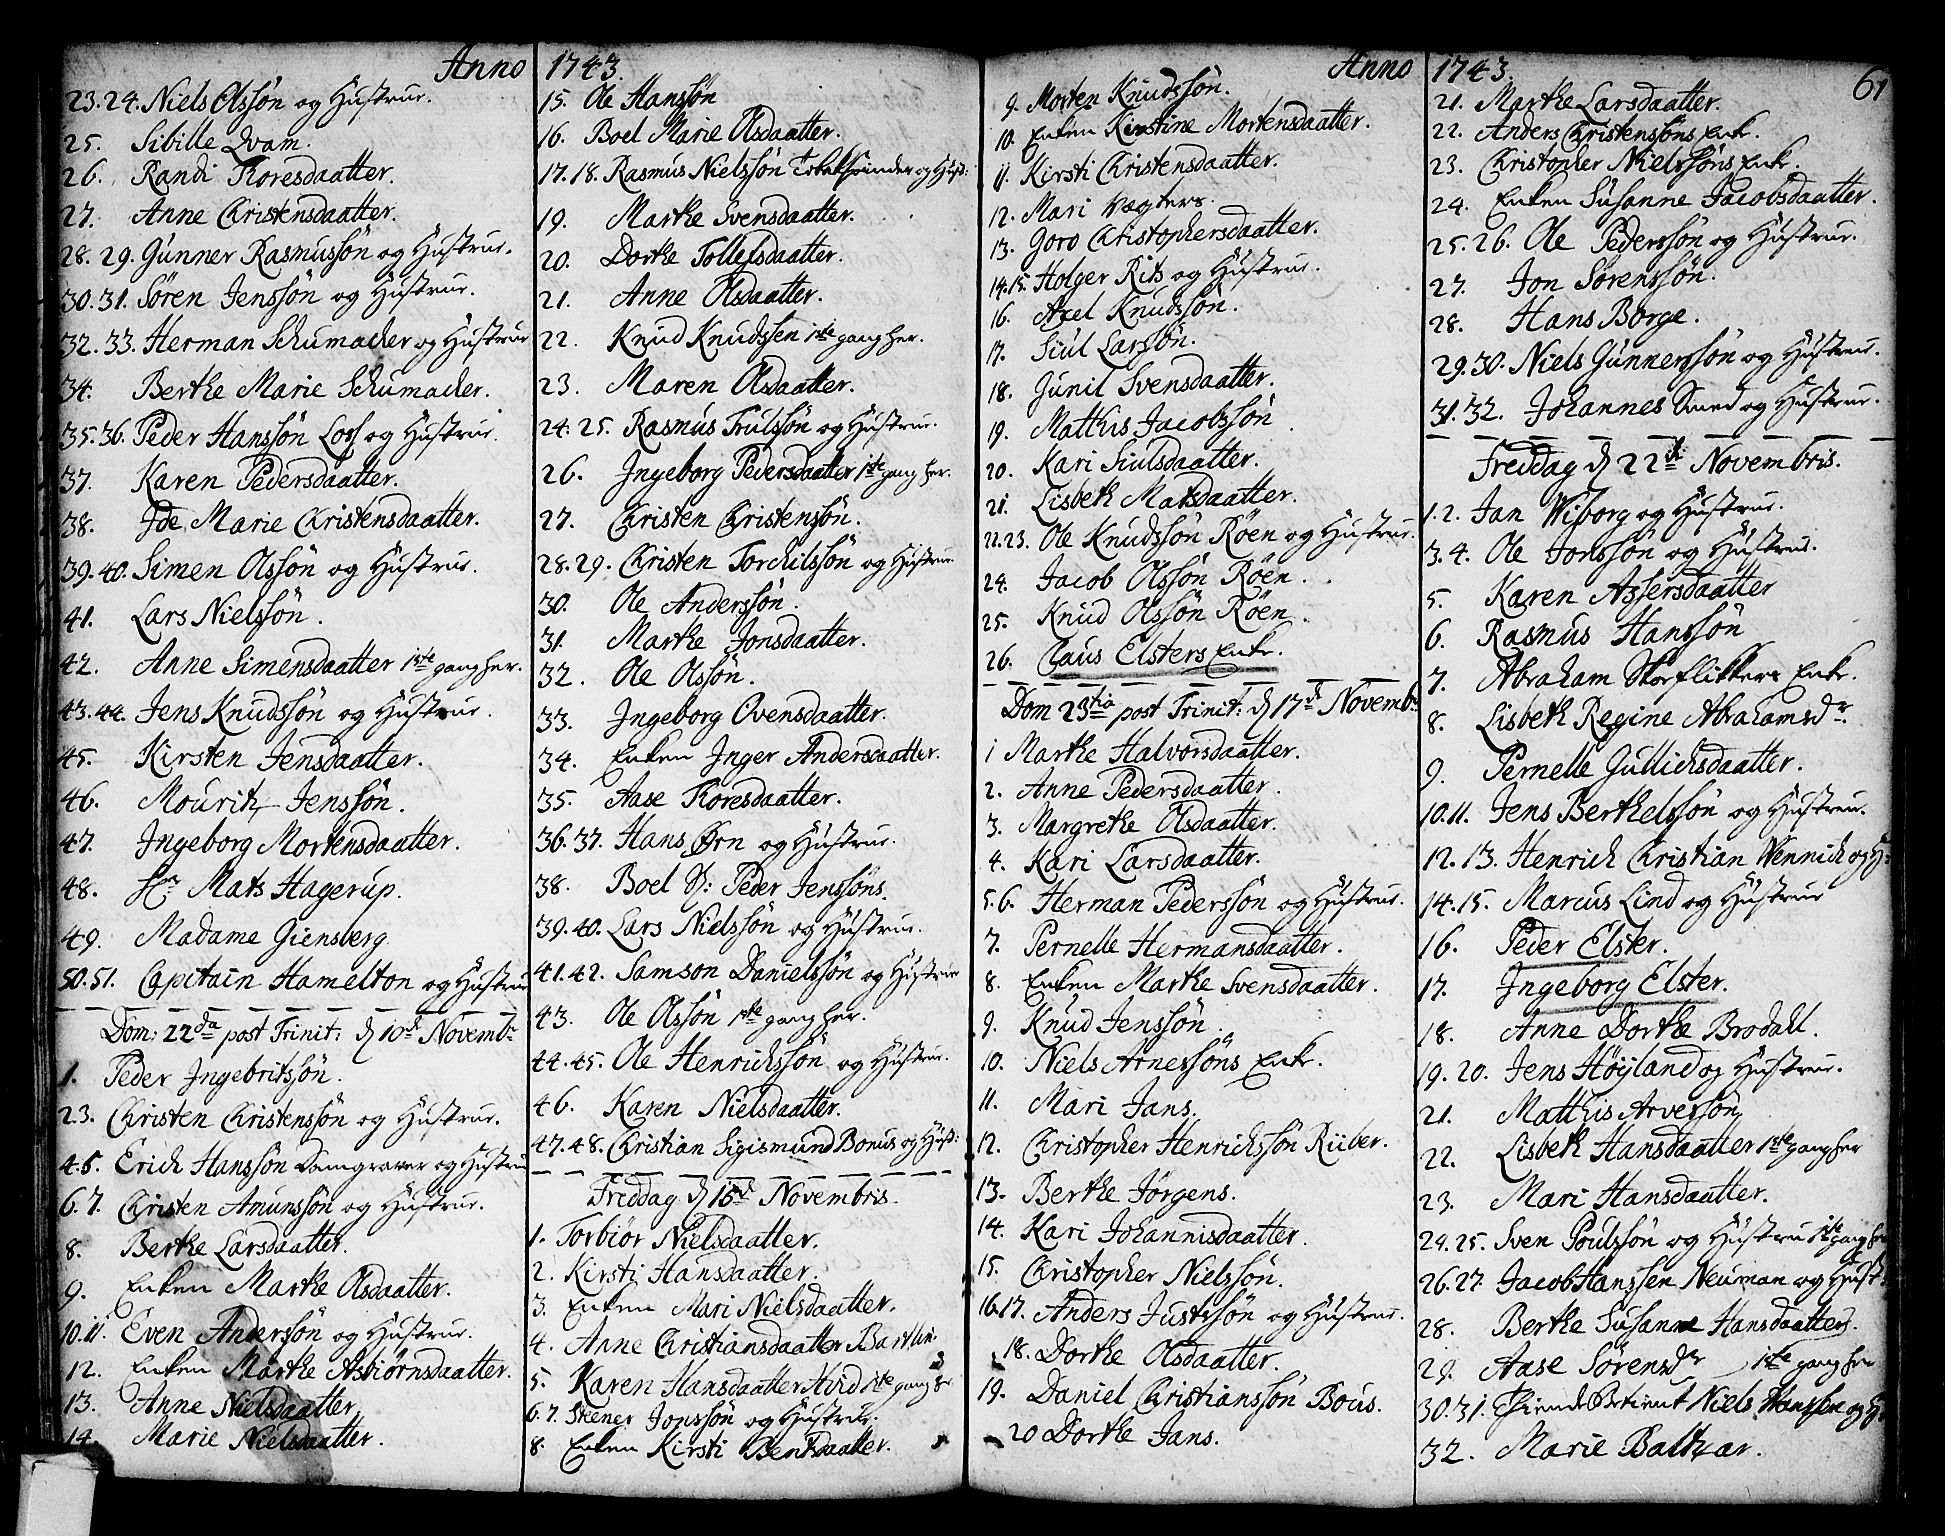 Anno 1743.
23. 24. Niels Olssön og Hustrue.
25. Sibille Qvam.
26. Randi Thoresdaatter.
27. Anne Christensdaatter.
28. 29. Gunner Rasmussön og Hustrue.
30. 31. Sören Jenssön og Hustrue.
32. 33. Herman Schumacher og Hustrue
34. Berthe Marie Schumacher.
35. 36. Peder Hanssön Loss og Hustrue.
37. Karen Pedersdaatter.
38. Ide Marie Christensdaatter.
39. 40. Simen Olssön og Hustrue.
41. Lars Nielssön.
42. Anne Simensdaatter 1ste gang her.
43. 44. Jens Knudssön og Hustrue.
45. Kirsten Jensdaatter.
46. Mouritz Jenssön.
47. Ingeborg Mortensdaatter.
48. Hr Mats Hagerup.
49. Madame Giensberg.
50. 51. Capitain Hamelton og Hustrue
Dom: 22da post Trinit: d 10de Novembr
1. Peder Ingebritssön.
2. 3. Christen Christenssön og Hustrue.
4. 5. Erich Hanssön Damgraver og Hustrue
6. 7. Christen Amunssön og Hustrue.
8. Berthe Larsdaatter.
9. Enken Marthe Olsdaatter.
10. 11. Even Anderssön og Hustrue.
12. Enken Marthe Asbiörnsdaatter.
13. Anne Nielsdaatter
14. Marie Nielsdaatter.
15. Ole Hanssön
16. Boel Marie Olsdaatter.
17. 18. Rasmus Nielssön Tobakspinder og Hust:
19. Marthe Svensdaatter.
20. Dorthe Tollefsdaatter.
21. Anne Olsdaatter.
22. Knud Knudssen 1ste gang her.
23. Maren Olsdaatter.
24. 25. Rasmus Trulssön og Hustrue.
26. Ingeborg Pedersdaatter 1ste gang her.
27. Christen Christenssön.
28. 29. Christen Torchilssön og Hustrue.
30. Ole Anderssön.
31. Marthe Jonsdaatter.
32. Ole Olssön.
33. Ingeborg Ovensdaatter.
34. Enken Inger Andersdaatter.
35. Aase Thoresdaatter.
36. 37. Hans Örn og Hustrue.
38. Boel S: Peder Jenssöns.
39. 40. Lars Nielssön og Hustrue.
41. 42. Samson Danielssön og Hustrue
43. Ole Olssön 1ste gang her.
44. 45. Ole Henrichssön og Hustrue.
46. Karen Nielsdaatter.
47. 48. Christian Sigismund Bonus og Hust:
Freddag d 15de Novembris.
1. Torbiör Nielsdaatter.
2. Kirsti Hansdaatter.
3. Enken Mari Nielsdaatter.
4. Anne Christiansdaatter Bartlin.
5. Karen Hansdaatter Hvid 1ste gang her
6. 7. Stener Jonssön og Hustrue.
8. Enken Kirsti Bentsdaatter.
Anno 1743. 61
9. Morten Knudssön.
10. Enken Kirstine Mortensdaatter.
11. Kirsti Christensdaatter.
12. Mari Vægters.
13. Goro Christophersdaatter.
14. 15. Holger Rits og Hustrue.
16. Axel Knudssön.
17. Siul Larssön.
18. Gunil Svensdaatter.
19. Matthis Jacobssön
20. Kari Siulsdaatter.
21. Lisbeth Matsdaatter.
22. 23. Ole Knudssön Röen og Hustrue.
24. Jacob Olssön Röen.
25. Knud Olssön Röen.
26. Claus Elsters Enke.
Dom 23tia post Trinit: d 17de Novembr
1 Marthe Halvorsdaatter.
2. Anne Pedersdaatter.
3. Margrethe Olsdaatter.
4. Kari Larsdaatter.
5. 6. Herman Pederssön og Hustrue.
7. Pernelle Hermansdaatter.
8. Enken Marthe Svensdaatter.
9. Knud Jenssön.
10. Niels Arnessöns Enke.
11. Mari Jans.
12. Christopher Henrichssön Riiber.
13. Berthe Jörgens.
14. Kari Johannisdaatter.
15. Christopher Nielssön.
16. 17. Anders Justssön og Hustrue.
18. Dorthe Olsdaatter.
19. Daniel Christianssön Bous.
20 Dorthe Jans.
21. Marthe Larsdaatter.
22. Anders Christenssöns Enke.
23. Christopher Nielssöns Enke.
24. Enken Susanne Jacobsdaatter.
25. 26. Ole Pederssön og Hustrue.
27. Jon Sörenssön.
28. Hans Borge.
29. 30. Niels Gunnerssön og Hustrue.
31. 32. Johannes Smed og Hustrue.
Freddag d 22de Novembris.
1. 2. Jan Wiborg og Hustrue.
3. 4. Ole Jonssön og Hustrue.
5. Karen Assersdaatter
6. Rasmus Hanssön
7. Abraham Skorflikkers Enke.
8. Lisbeth Regine Abrahamsdr
9. Pernelle Gullichsdaatter.
10. 11. Jens Berthelssön og Hustrue.
12. 13. Henrich Christian Wennich og H:
14. 15. Marcus Lind og Hustrue
16. Peder Elster.
17. Ingeborg Elster.
18. Anne Dorthe Brodahl.
19. 20. Jens Höyland og Hustrue.
21. Matthis Arverson
22. Lisbeth Hansdaatter 1ste gang her
23. Mari Hansdaatter.
24. 25. Sven Poulssön og Hustrue 1ste gang her
26. 27. Jacob Hanssen Neuman og Hust:
28. Berthe Susanne Hansdaatter.
29. Aase Sörensdr 1ste gang her
30. 31. Niels Hanssen og H:
32. Marie Baltzar.